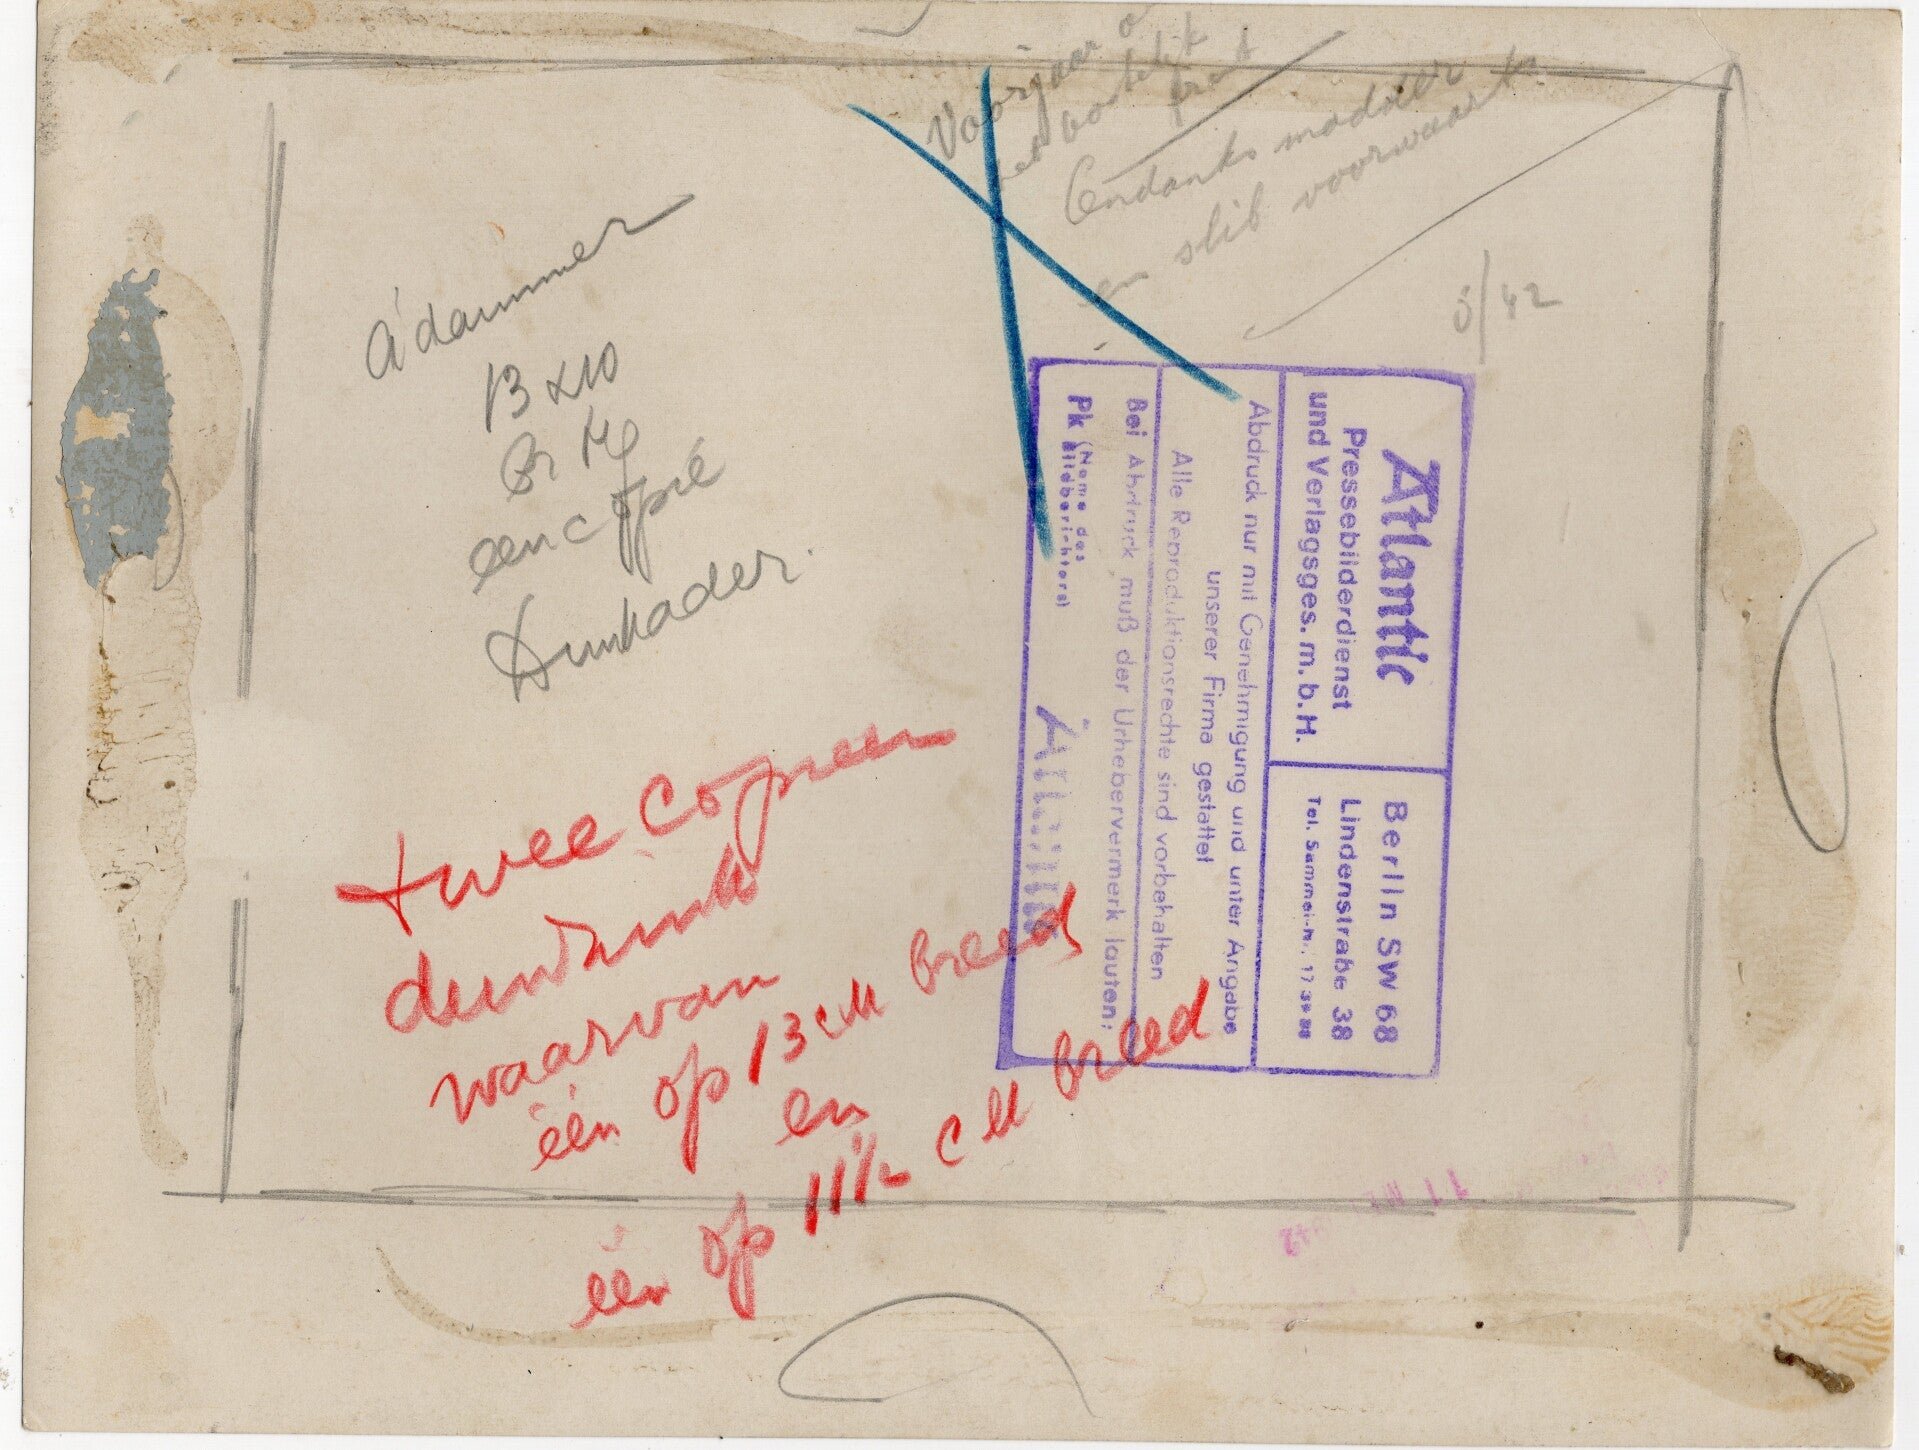 Voorjaar
front
Ondanks modder
en slib voorwaarts
5/42
A'dammer
13 x 10
een copie
twee copieen
waarvan
één op 13 cM breed
en
één op 11½ cM breed
Atlantic
Pressebilderdienst
und Verlagsges.m.b.H.
Berlin SW 68
Lindenstraße 38
Tel. Sammel-Nr. 17
Abdruck nur mit Genehmigung und unter Angabe
unserer Firma gestattet
Alle Reproduktionsrechte sind vorbehalten
Bei Abdruck muß der Urhebervermerk lauten:
Pk (Name des Bildberichters)
Atlantic